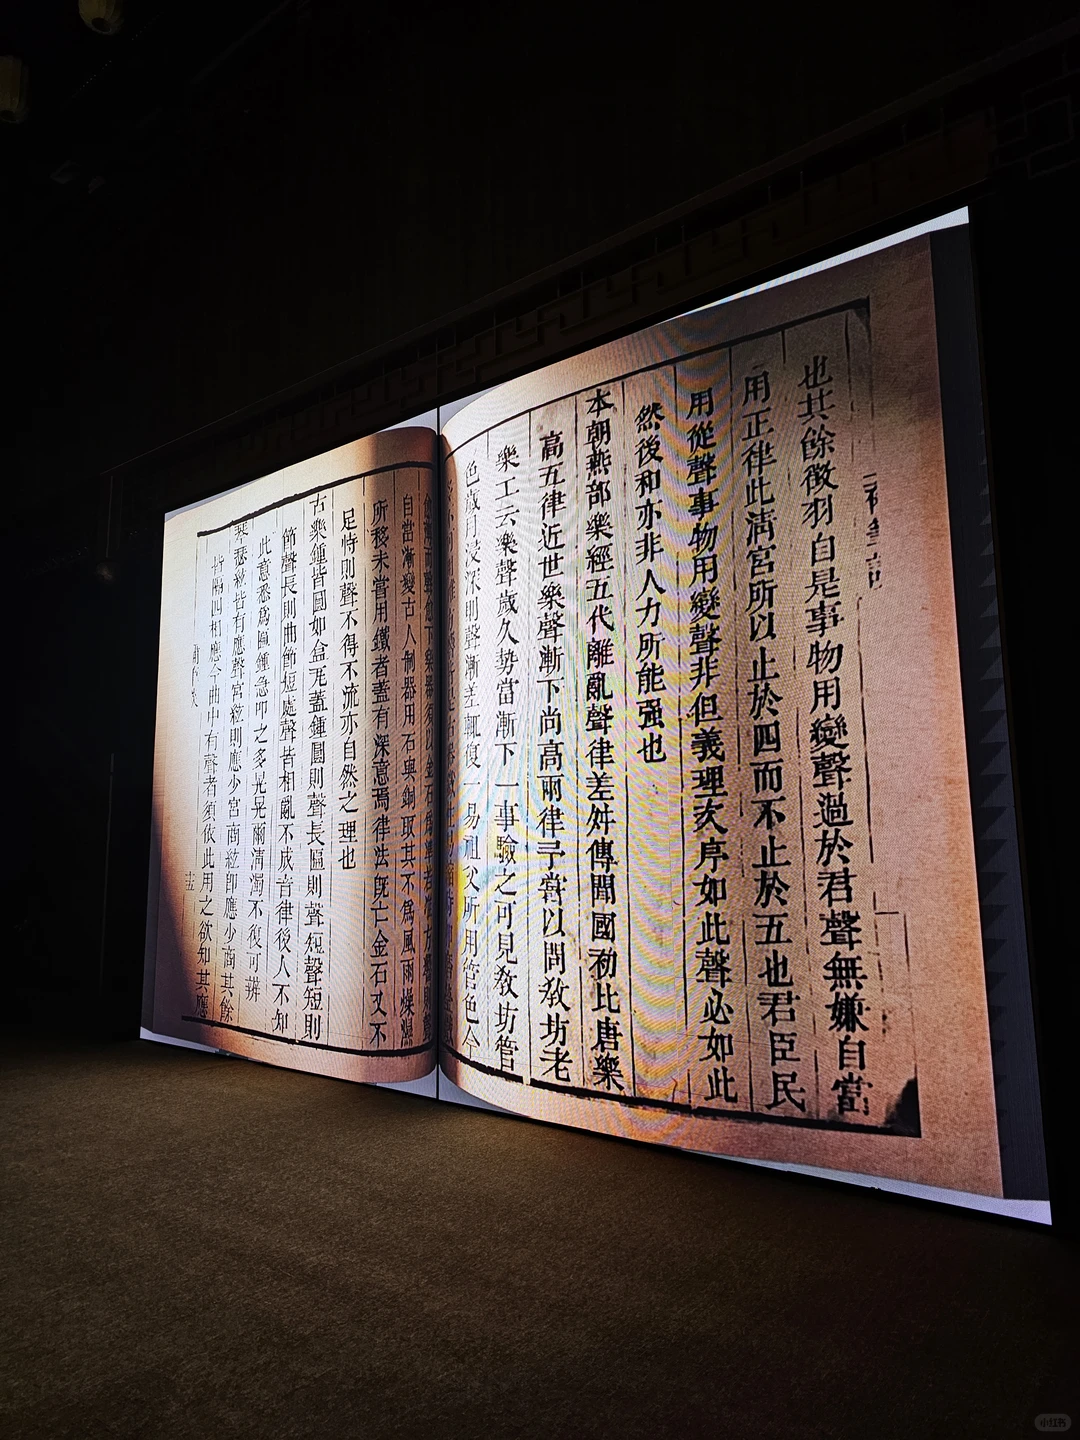 也其餘徵羽自是事物用變聲過於君聲無嫌自當
用正律此清宮所以止於四而不止於五也君臣民
用從聲事物用變聲非但義理次序如此聲必如此
然後和亦非人力所能强也
本朝燕部樂經五代離亂聲律差舛傳聞國初比唐樂
高五律近世樂聲漸下尚高兩律予嘗以問教坊老
樂工云樂聲歲久勢當漸下一事驗之可見教坊管
色歲月浸深則聲漸差輒復一易祖父所用管色今
自當漸變古人制器用石與銅取其不爲風雨燥濕
所移未嘗用鐵者蓋有深意焉律法旣亡金石又不
足恃則聲不得不流亦自然之理也
古樂鍾皆圓如盒瓦蓋鍾圓則聲長匾則聲短聲短則
節聲長則曲節短處聲皆相亂不成音律後人不知
此意悉爲匾鍾急叩之多晃晃爾清濁不復可辨
琴瑟絃皆有應聲宮絃則應少宮商絃卽應少商其餘
皆隔四相應今曲中有聲者須依此用之欲知其應
小红书